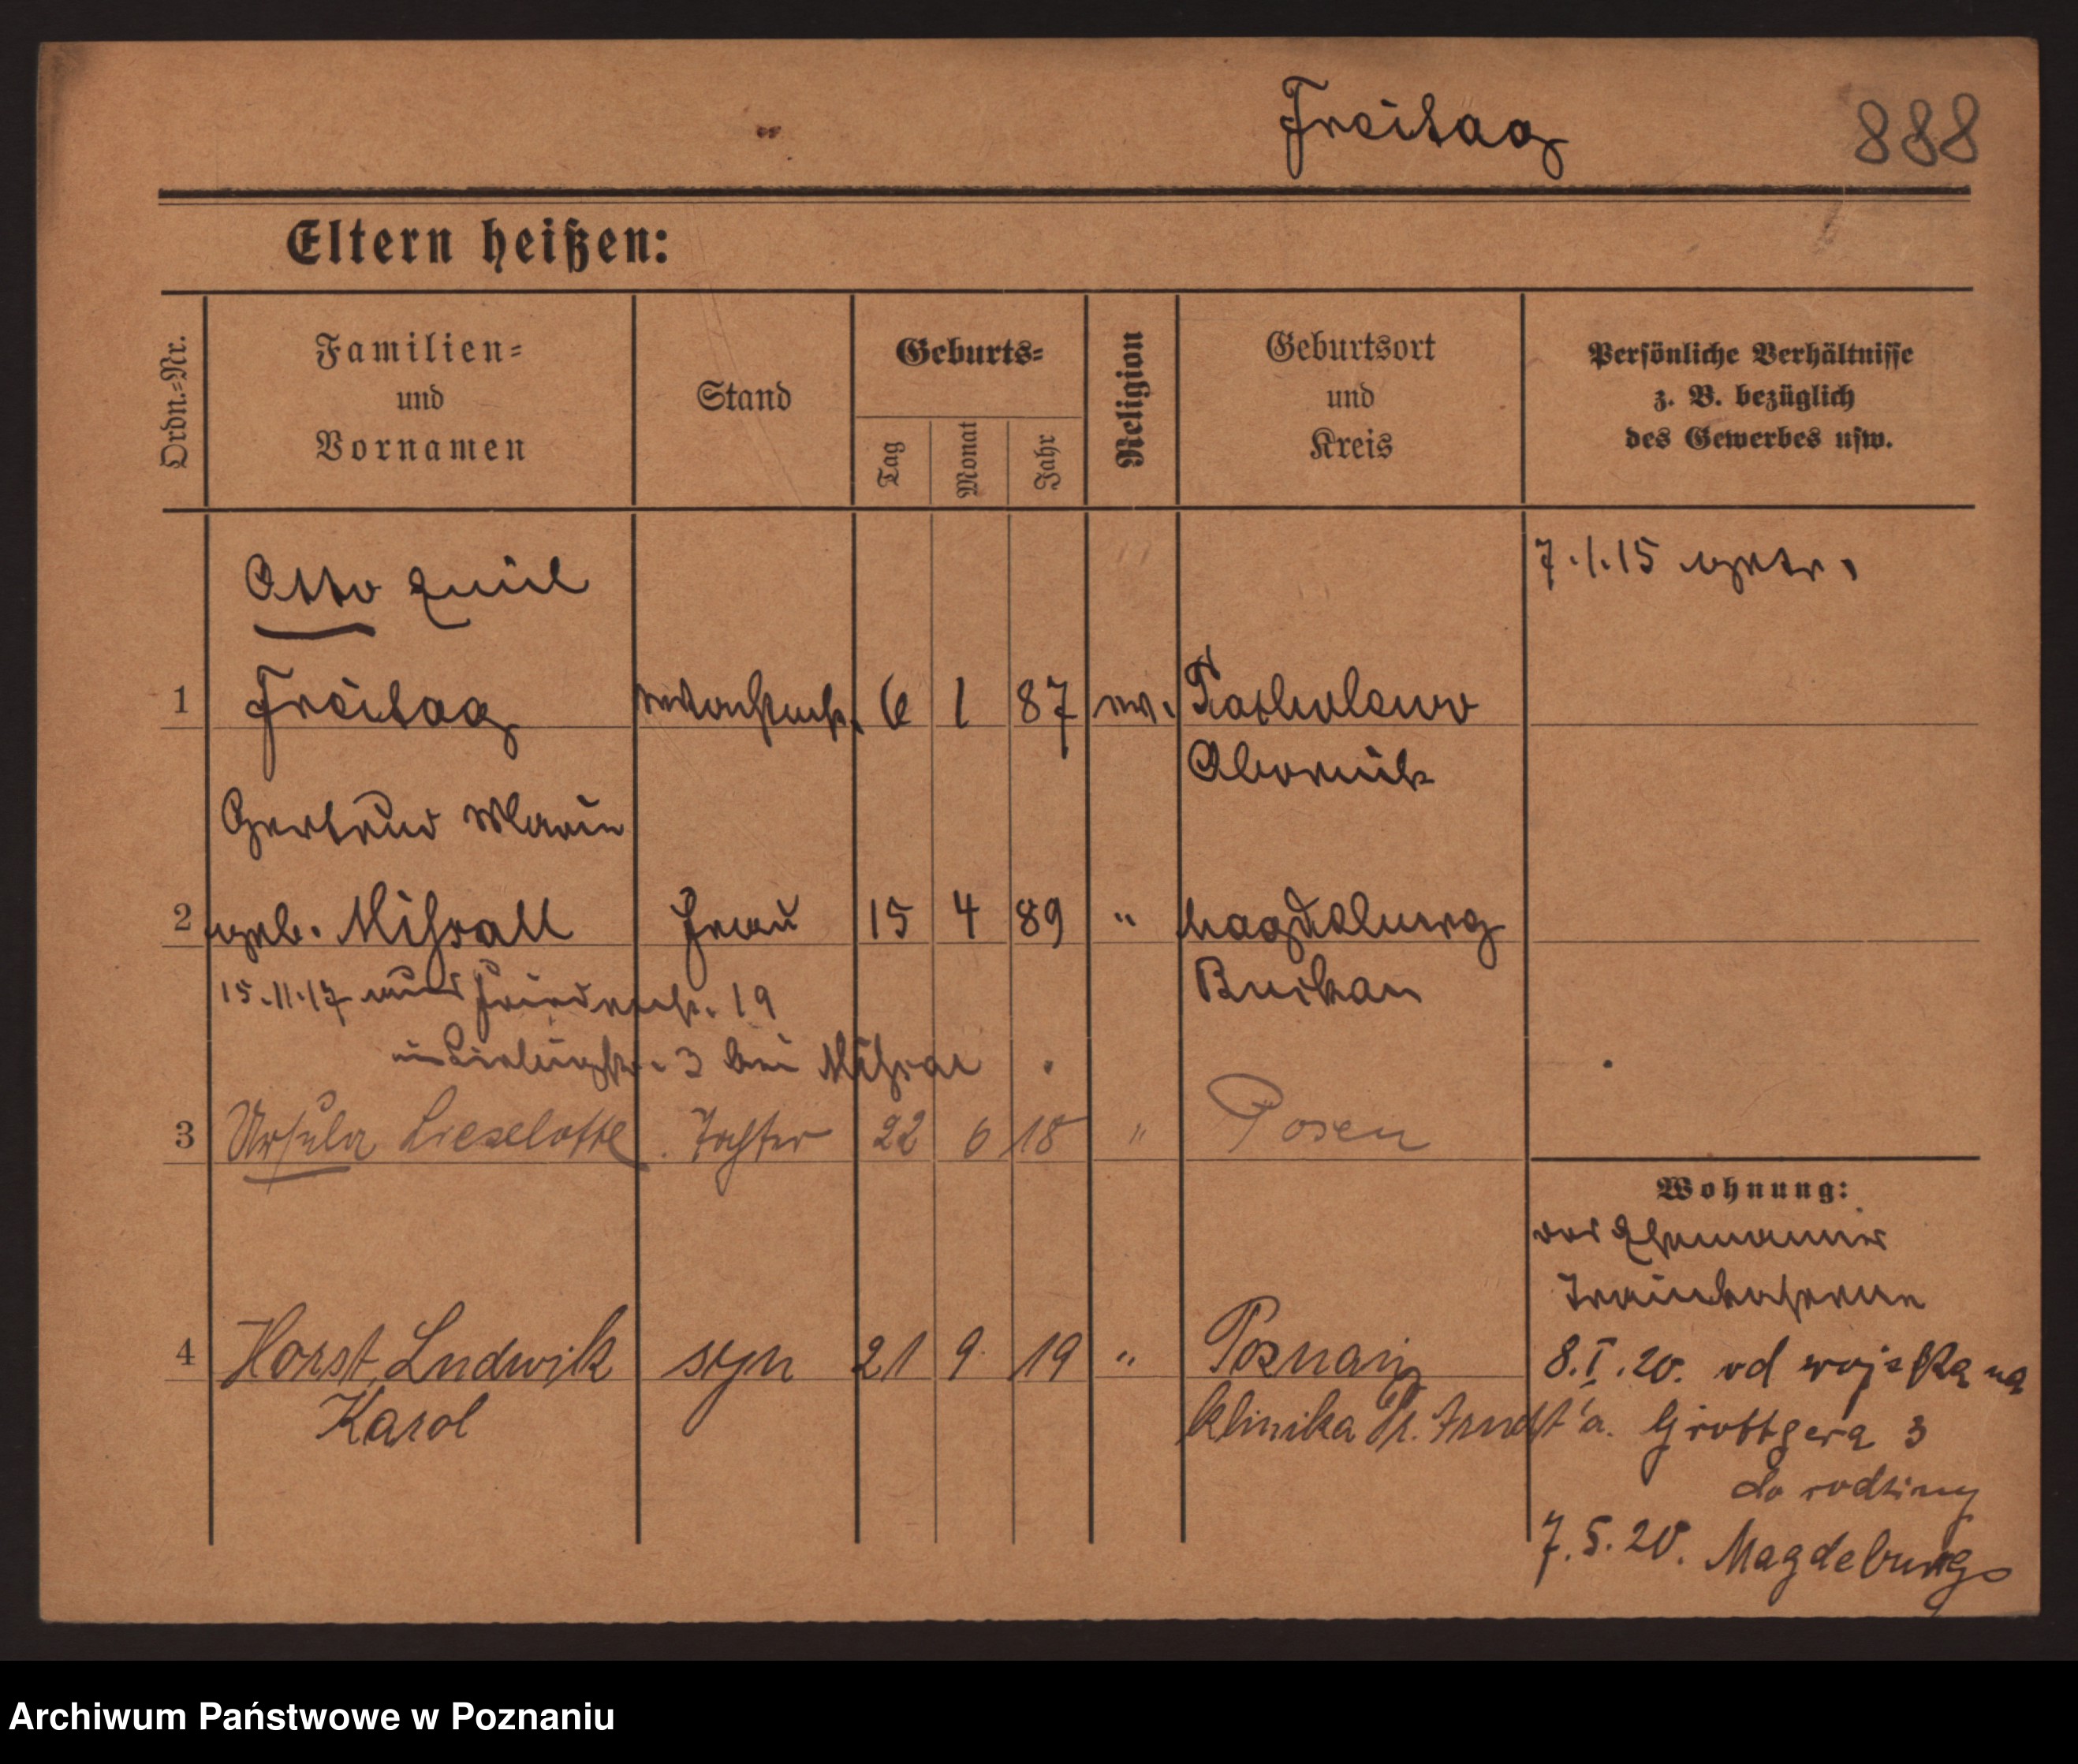 Freitag 888
Eltern heißen:
Ordn.=Nr.
Familien=
und
Vornamen
Stand
Geburts=
Tag
Monat
Jahr
Religion
Geburtsort
und
Kreis
Persönliche Verhältnisse
z. B. bezüglich
des Gewerbes usw.
7.1.15 getr.
Otto Emil
1 Freitag 6 1 87 ev.
Obornik
Gertrud Marie
2 geb. Frau 15 4 89 " Magdeburg
15.11.17 19 Buckau
3 bei
3 Ursula Lieselotte Tochter 22 6 18 " Posen
Wohnung:
der Ehemann
Trainkaserne
4 Horst, Ludwik syn 21 9 19 " Poznań
Karol
klinika
8.I.20. od wojska na
Grottgera 3
do rodziny
7.5.20. Magdeburg
Archiwum Państwowe w Poznaniu